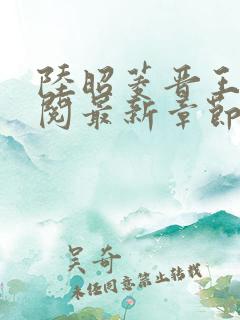 陸昭菱晋王
閱最新章節
吴奇
未经同意禁止转载